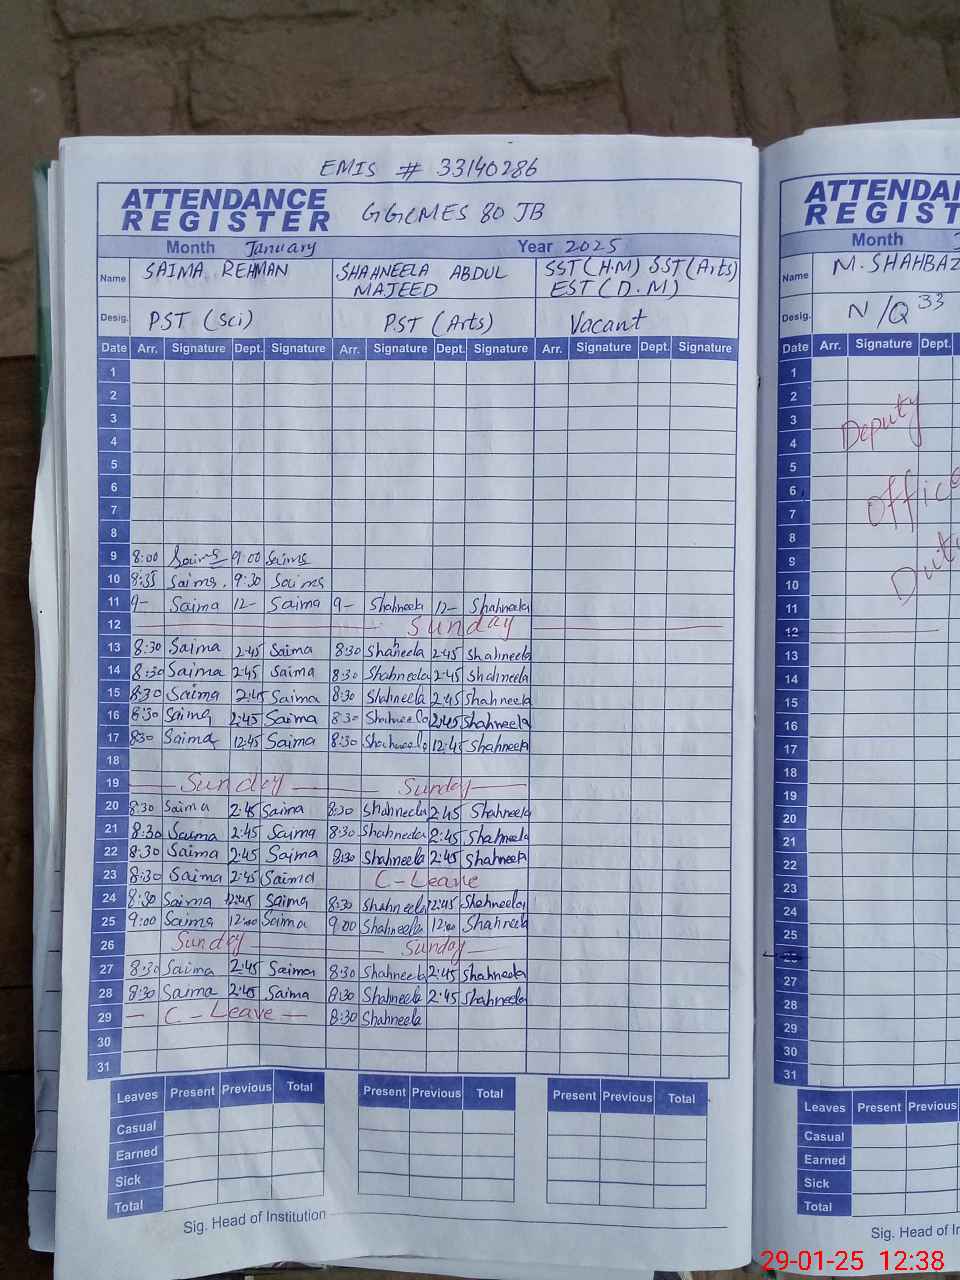 EMIS # 33140286
ATTENDANCE REGISTER GGCMES 80 JB
Month January Year 2025
Name SAIMA REHMAN SHAHNEELA ABDUL MAJEED SST(H.M) SST(Arts) EST(D.M)
Desig. PST (Sci) PST (Arts) Vacant
Date Arr. Signature Dept. Signature Arr. Signature Dept. Signature Arr. Signature Dept. Signature
1
2
3
4
5
6
7
8
9 8:00 Saima 9:00 Saima
10 8:35 Saima. 9:30 Saima
11 9- Saima 12- Saima 9- Shahneela 12- Shahneela
12 Sunday
13 8:30 Saima 2:45 Saima 8:30 Shahneela 2:45 Shahneela
14 8:30 Saima 2:45 Saima 8:30 Shahneela 2:45 Shahneela
15 8:30 Saima 2:45 Saima 8:30 Shahneela 2:45 Shahneela
16 8:30 Saima 2:45 Saima 8:30 Shahneela 2:45 Shahneela
17 830 Saima 12:45 Saima 8:30 Shahneela 12:45 Shahneela
18
19 Sunday Sunday
20 8:30 Saima 2:45 Saima 8:30 Shahneela 2:45 Shahneela
21 8:30 Saima 2:45 Saima 8:30 Shahneela 2:45 Shahneela
22 8:30 Saima 2:45 Saima 8:30 Shahneela 2:45 Shahneela
23 8:30 Saima 2:45 Saima C-Leave
24 8:30 Saima 12:45 Saima 8:30 Shahneela 12:45 Shahneela
25 9:00 Saima 12:00 Saima 9:00 Shahneela 12:00 Shahneela
26 Sunday Sunday
27 8:30 Saima 2:45 Saima 8:30 Shahneela 2:45 Shahneela
28 8:30 Saima 2:45 Saima 8:30 Shahneela 2:45 Shahneela
29 - C-Leave - 8:30 Shahneela
30
31
Leaves Present Previous Total Present Previous Total Present Previous Total
Casual
Earned
Sick
Total
Sig. Head of Institution
REGISTER
Month
Name M. SHAHBAZ
Desig. N/Q 33
Date Arr. Signature Dept.
1
2
3 Deputy
4
5
6
7
8
9
10
11
12
13
14
15
16
17
18
19
20
21
22
23
24
25
26
27
28
29
30
31
Leaves Present Previous
Casual
Earned
Sick
Total
Sig. Head of
29-01-25 12:38